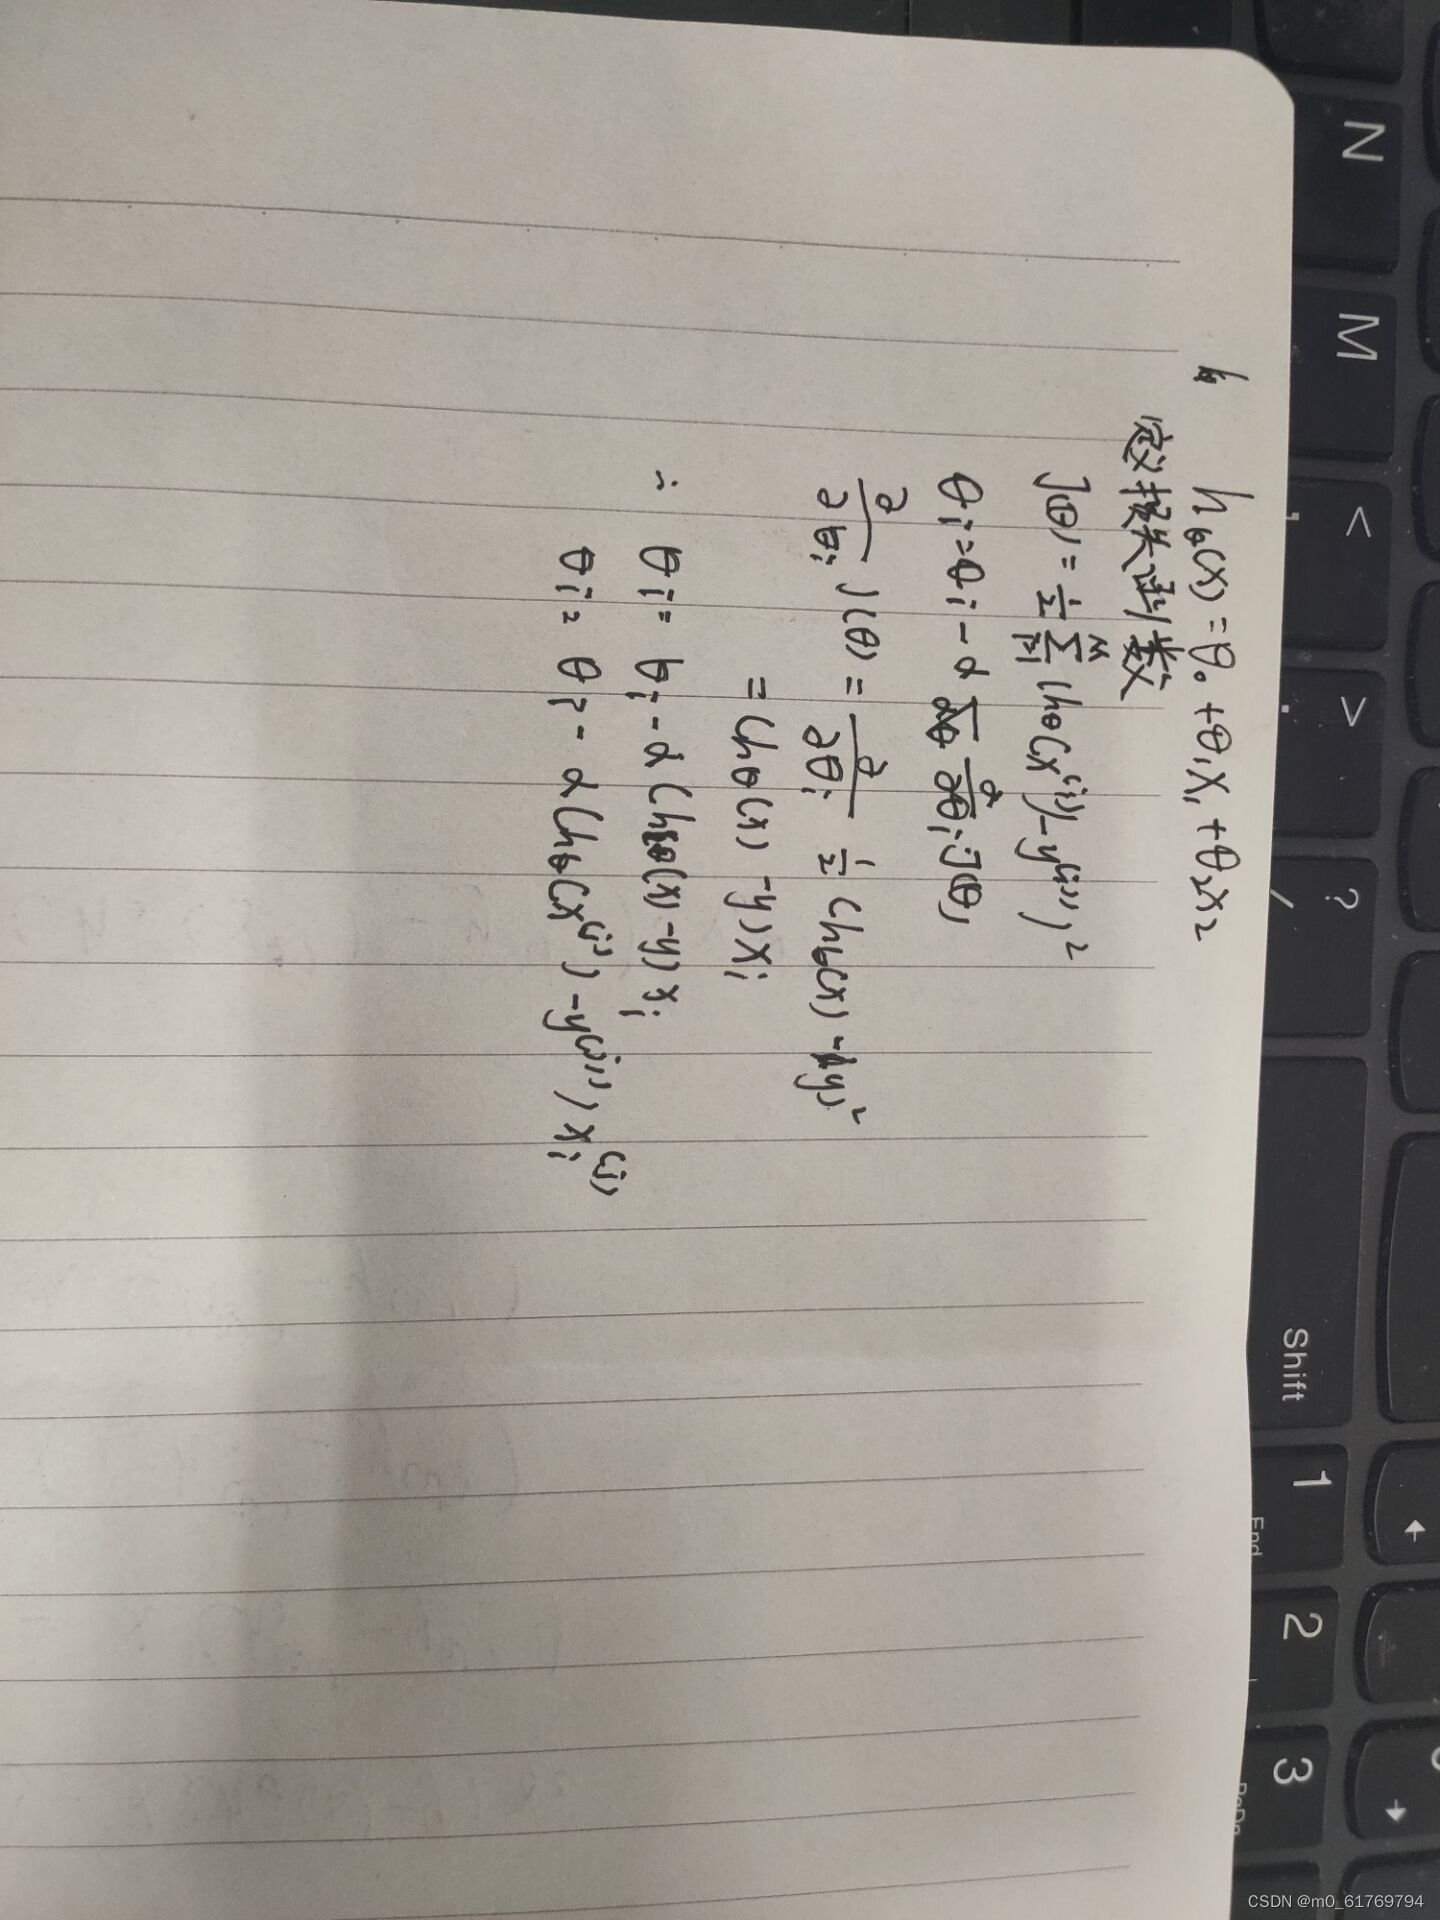 h_θ(x) = θ₀ + θ₁x₁ + θ₂x₂
定义损失函数
J(θ) = 1/2 Σ_{i=1}^{m} (h_θ(x^{(i)}) - y^{(i)})²
θ_i = θ_i - α ∂/∂θ_i J(θ)
∂/∂θ_i J(θ) = ∂/∂θ_i 1/2 (h_θ(x) - y)²
= (h_θ(x) - y) x_i
∴ θ_i = θ_i - α (h_θ(x) - y) x_i
θ_i = θ_i - α (h_θ(x^{(j)}) - y^{(j)}) x_i^{(j)}
N
M
<
,
>
.
?
/
Shift
1
End
2
3
PgDn
CSDN @m0_61769794